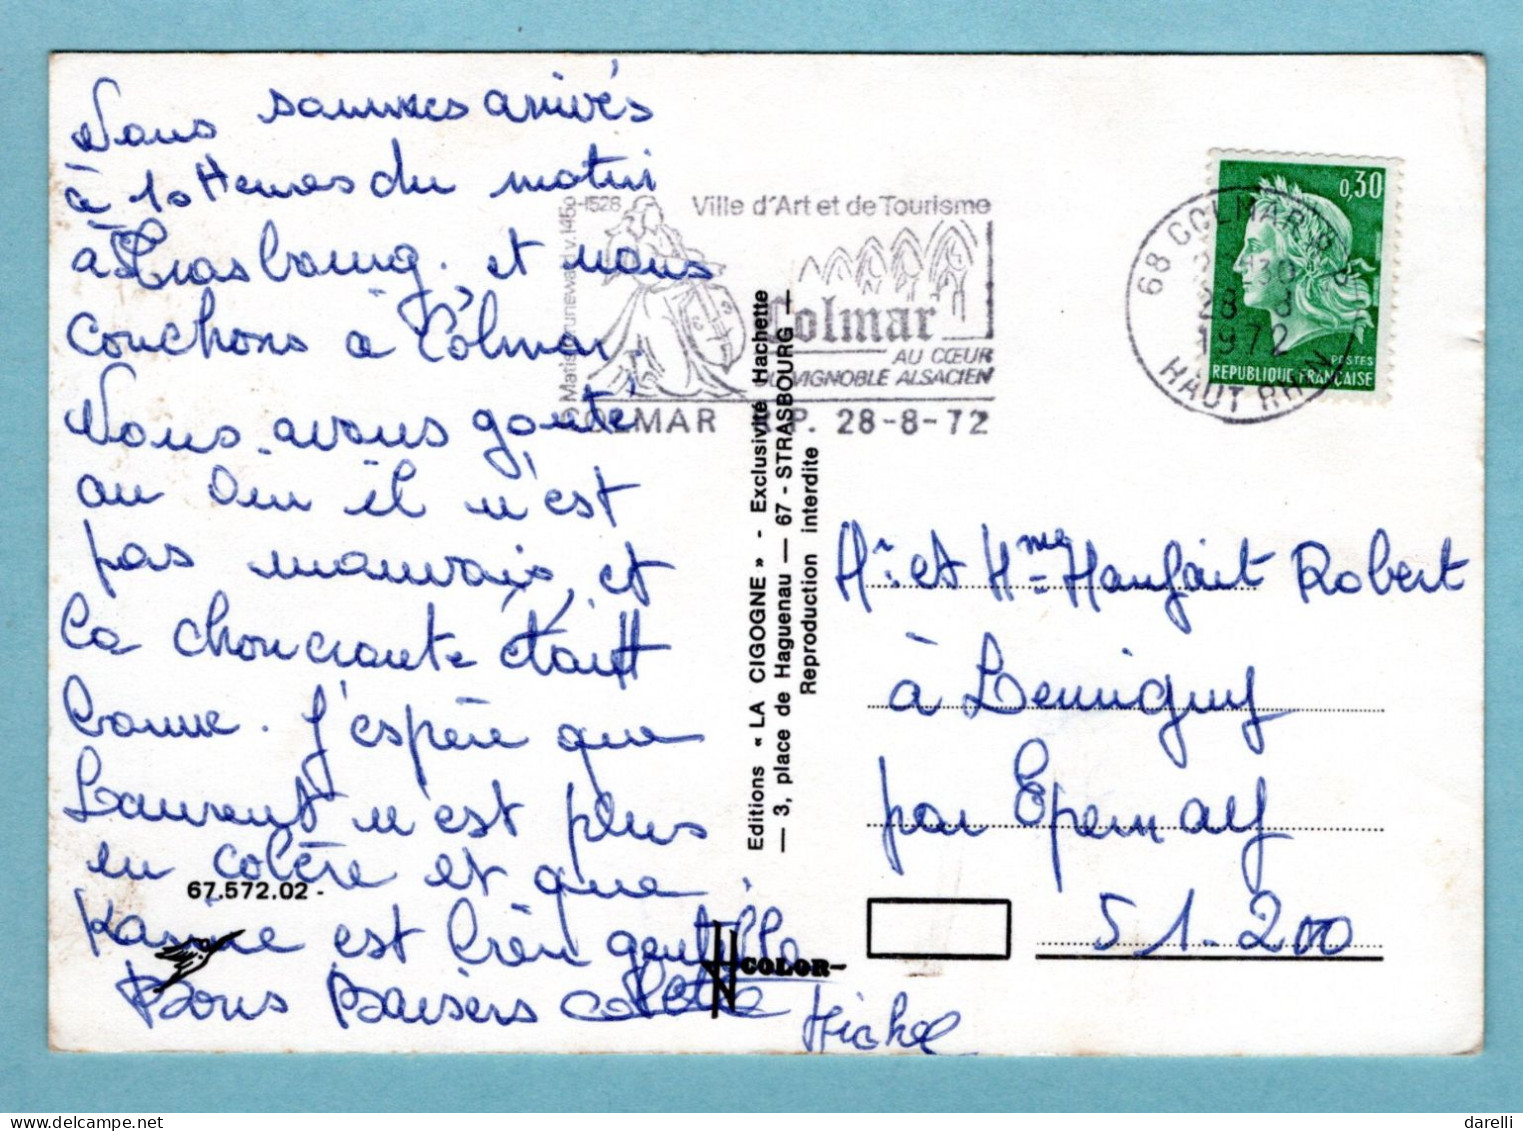 Nous sommes arrivés
à 10 Heures du matin
à Strasbourg. et nous
couchons à Colmar.
Nous avons goûté
au vin il n'est
pas mauvais, et
la choucroute était
bonne. J'espère que
Laurent n'est plus
en colère et que
Karine est bien gentille
Bons Baisers Colette
Michel
67.572.02 -
COLOR
Editions « LA CIGOGNE » - Exclusivité Hachette
— 3, place de Haguenau — 67 - STRASBOURG —
Reproduction interdite
1450-1528
Ville d'Art et de Tourisme
Colmar
AU CŒUR
DU VIGNOBLE ALSACIEN
COLMAR P. 28-8-72
68 COLMAR
28-8
1972
HAUT RHIN
0,30
POSTES
REPUBLIQUE FRANÇAISE
Mr. et Mme Haufait Robert
à
par Epernay
51-200
darelli